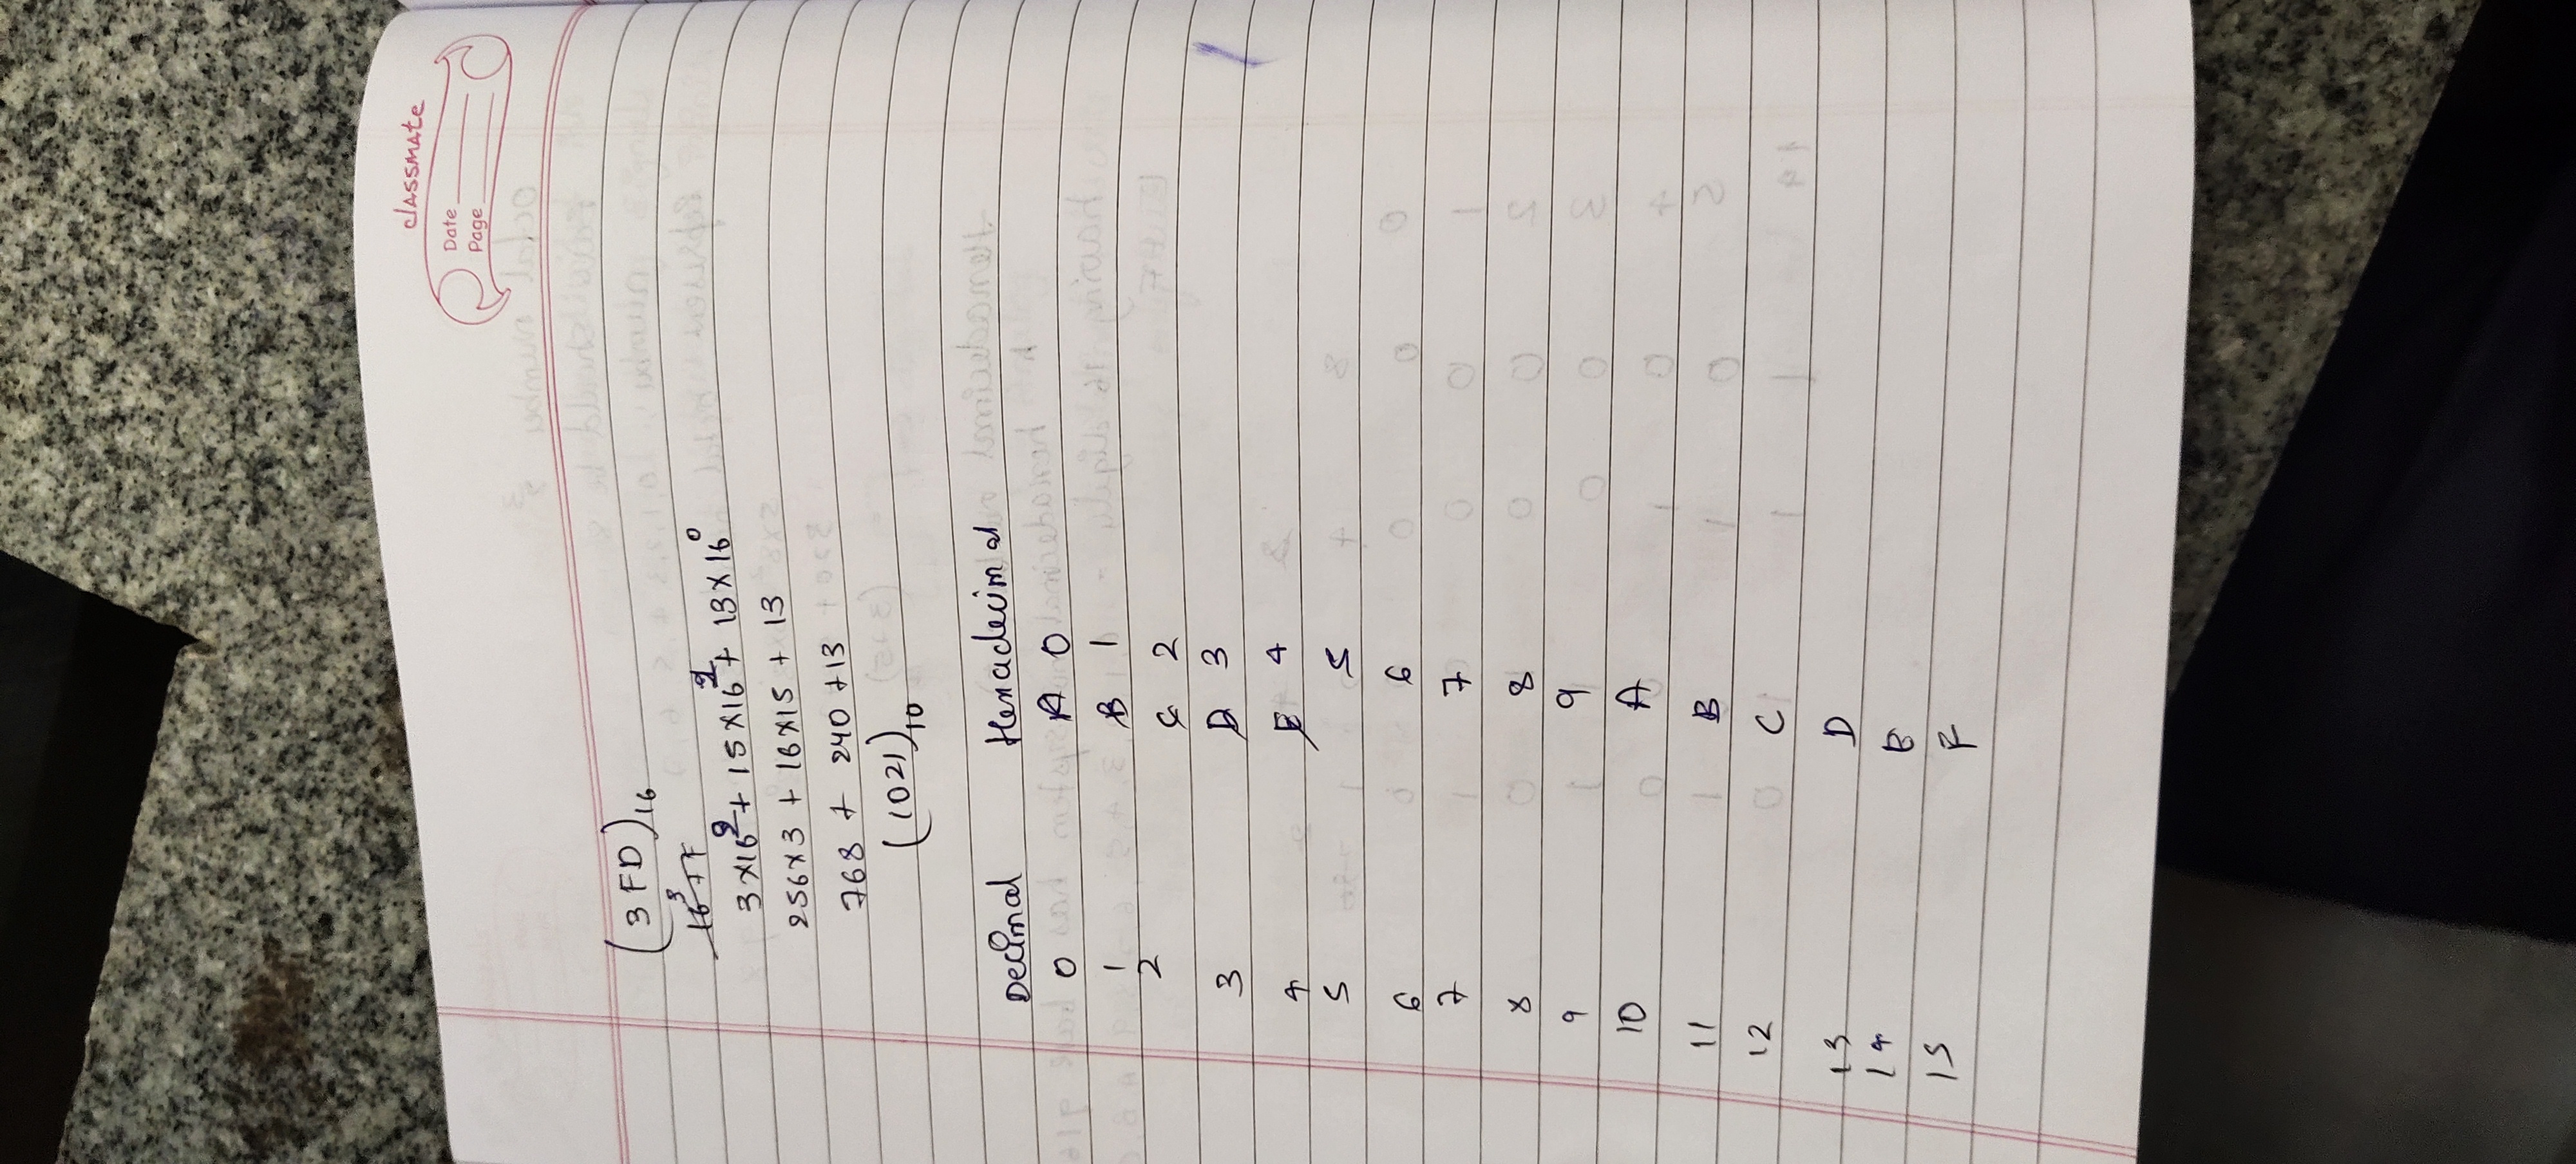 classmate
Date
Page
(3FD)16
3×16² + 15×16¹ + 13×16⁰
256×3 + 16×15 + 13
768 + 240 + 13
(1021)10
Decimal Hexadecimal
0 A 0
1 B 1
2 C 2
3 D 3
4 E 4
5 5
6 6
7 7
8 8
9 9
10 A
11 B
12 C
13 D
14 E
15 F